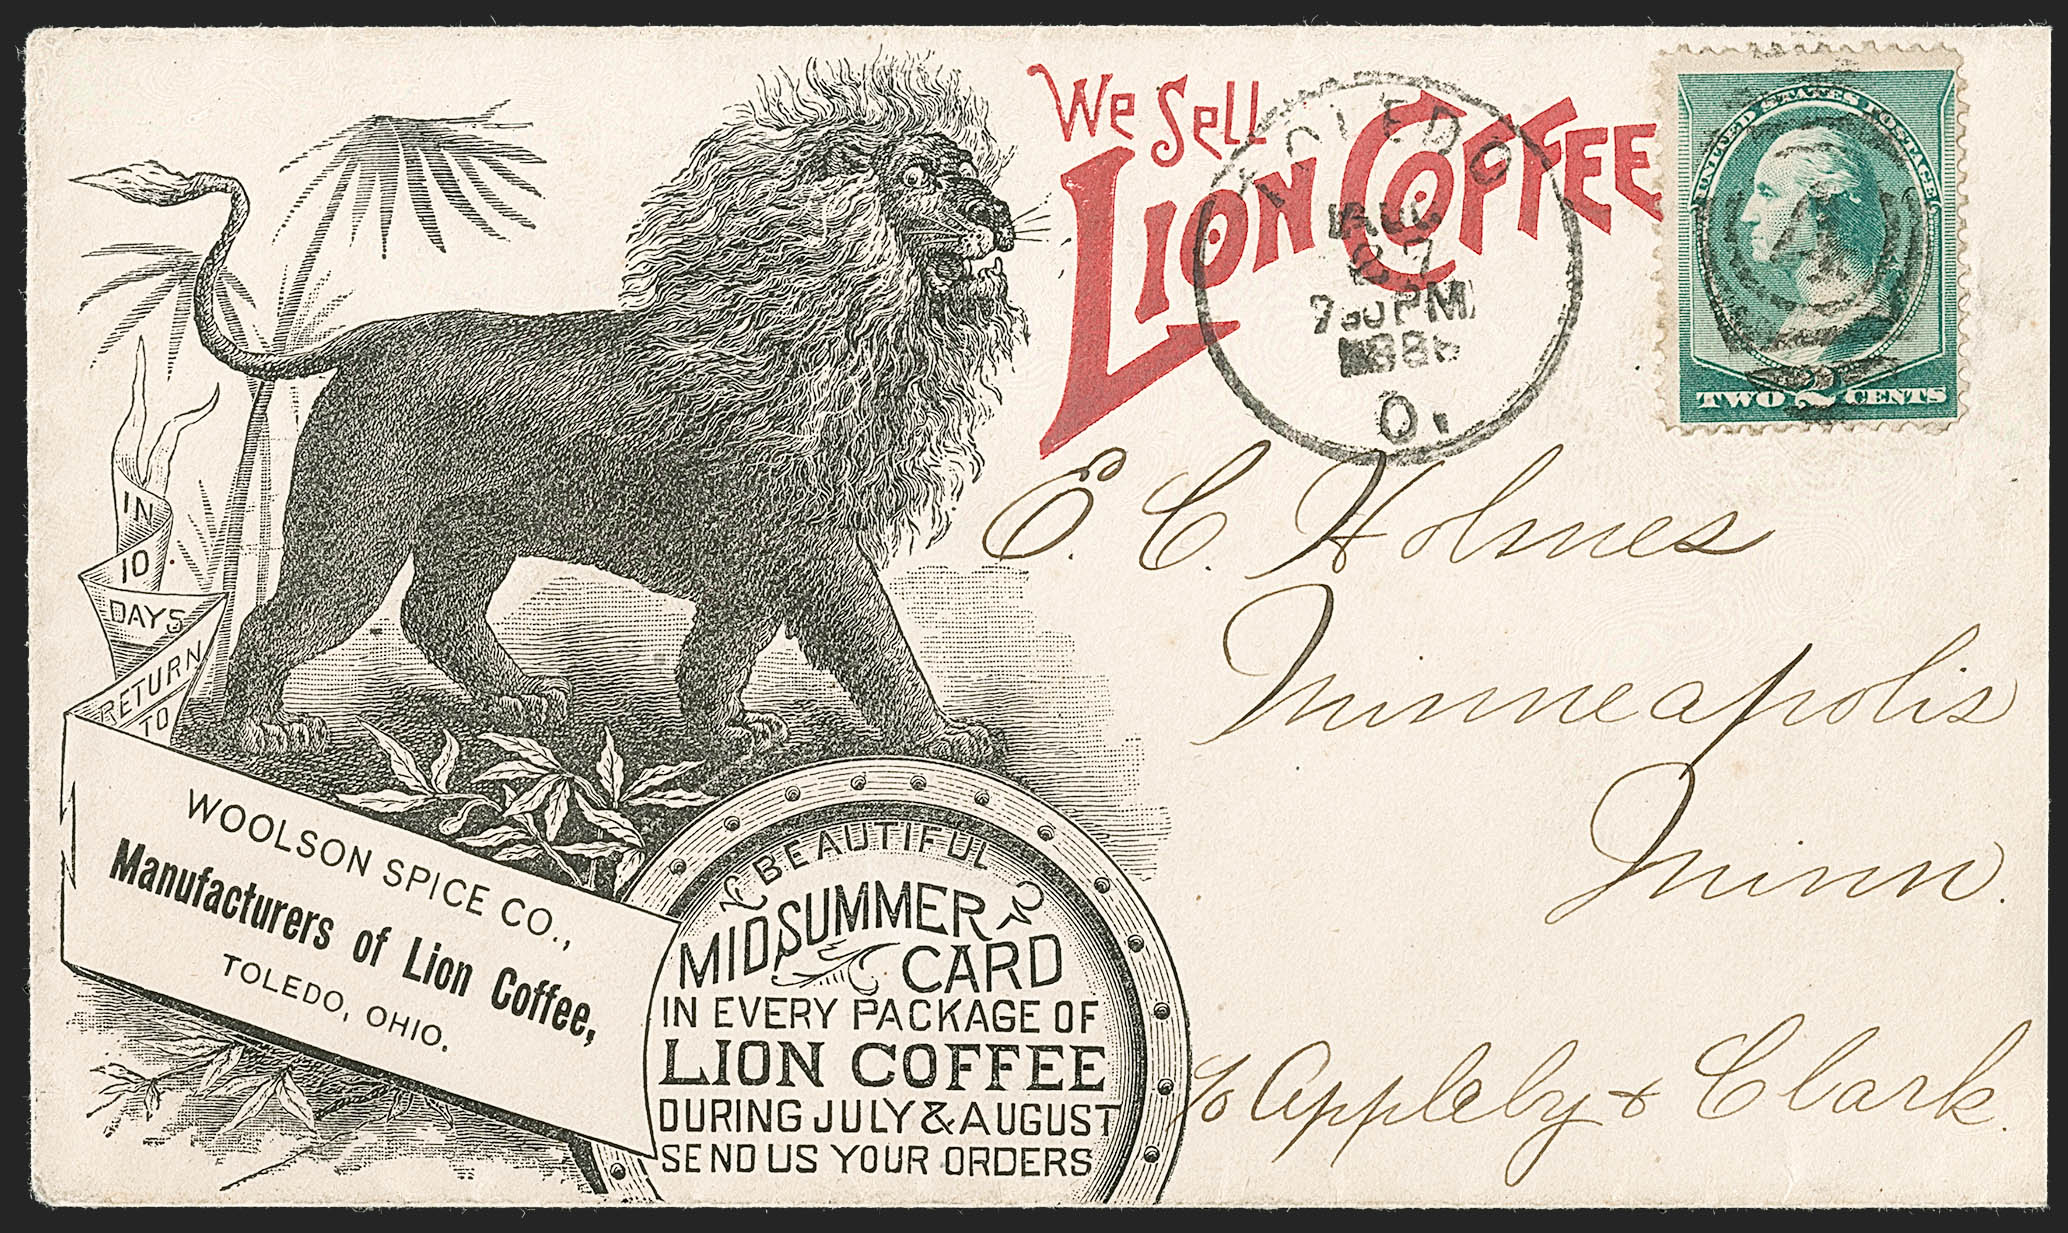 We Sell
LION COFFEE
TOLEDO
AUG
27
730 PM
O.
UNITED STATES POSTAGE
TWO 2 CENTS
E. C. Holmes
Minneapolis
Minn.
c/o Appleby & Clark.
IN
10
DAYS
RETURN
TO
WOOLSON SPICE CO.,
Manufacturers of Lion Coffee,
TOLEDO, OHIO.
BEAUTIFUL
MIDSUMMER
CARD
IN EVERY PACKAGE OF
LION COFFEE
DURING JULY & AUGUST
SEND US YOUR ORDERS